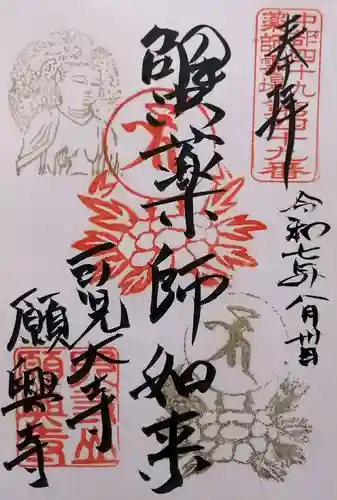 奉拝
中部四十九
薬師霊場第四十九番
令和七年八月卅日
蟹薬師如来
可児大寺
願興寺